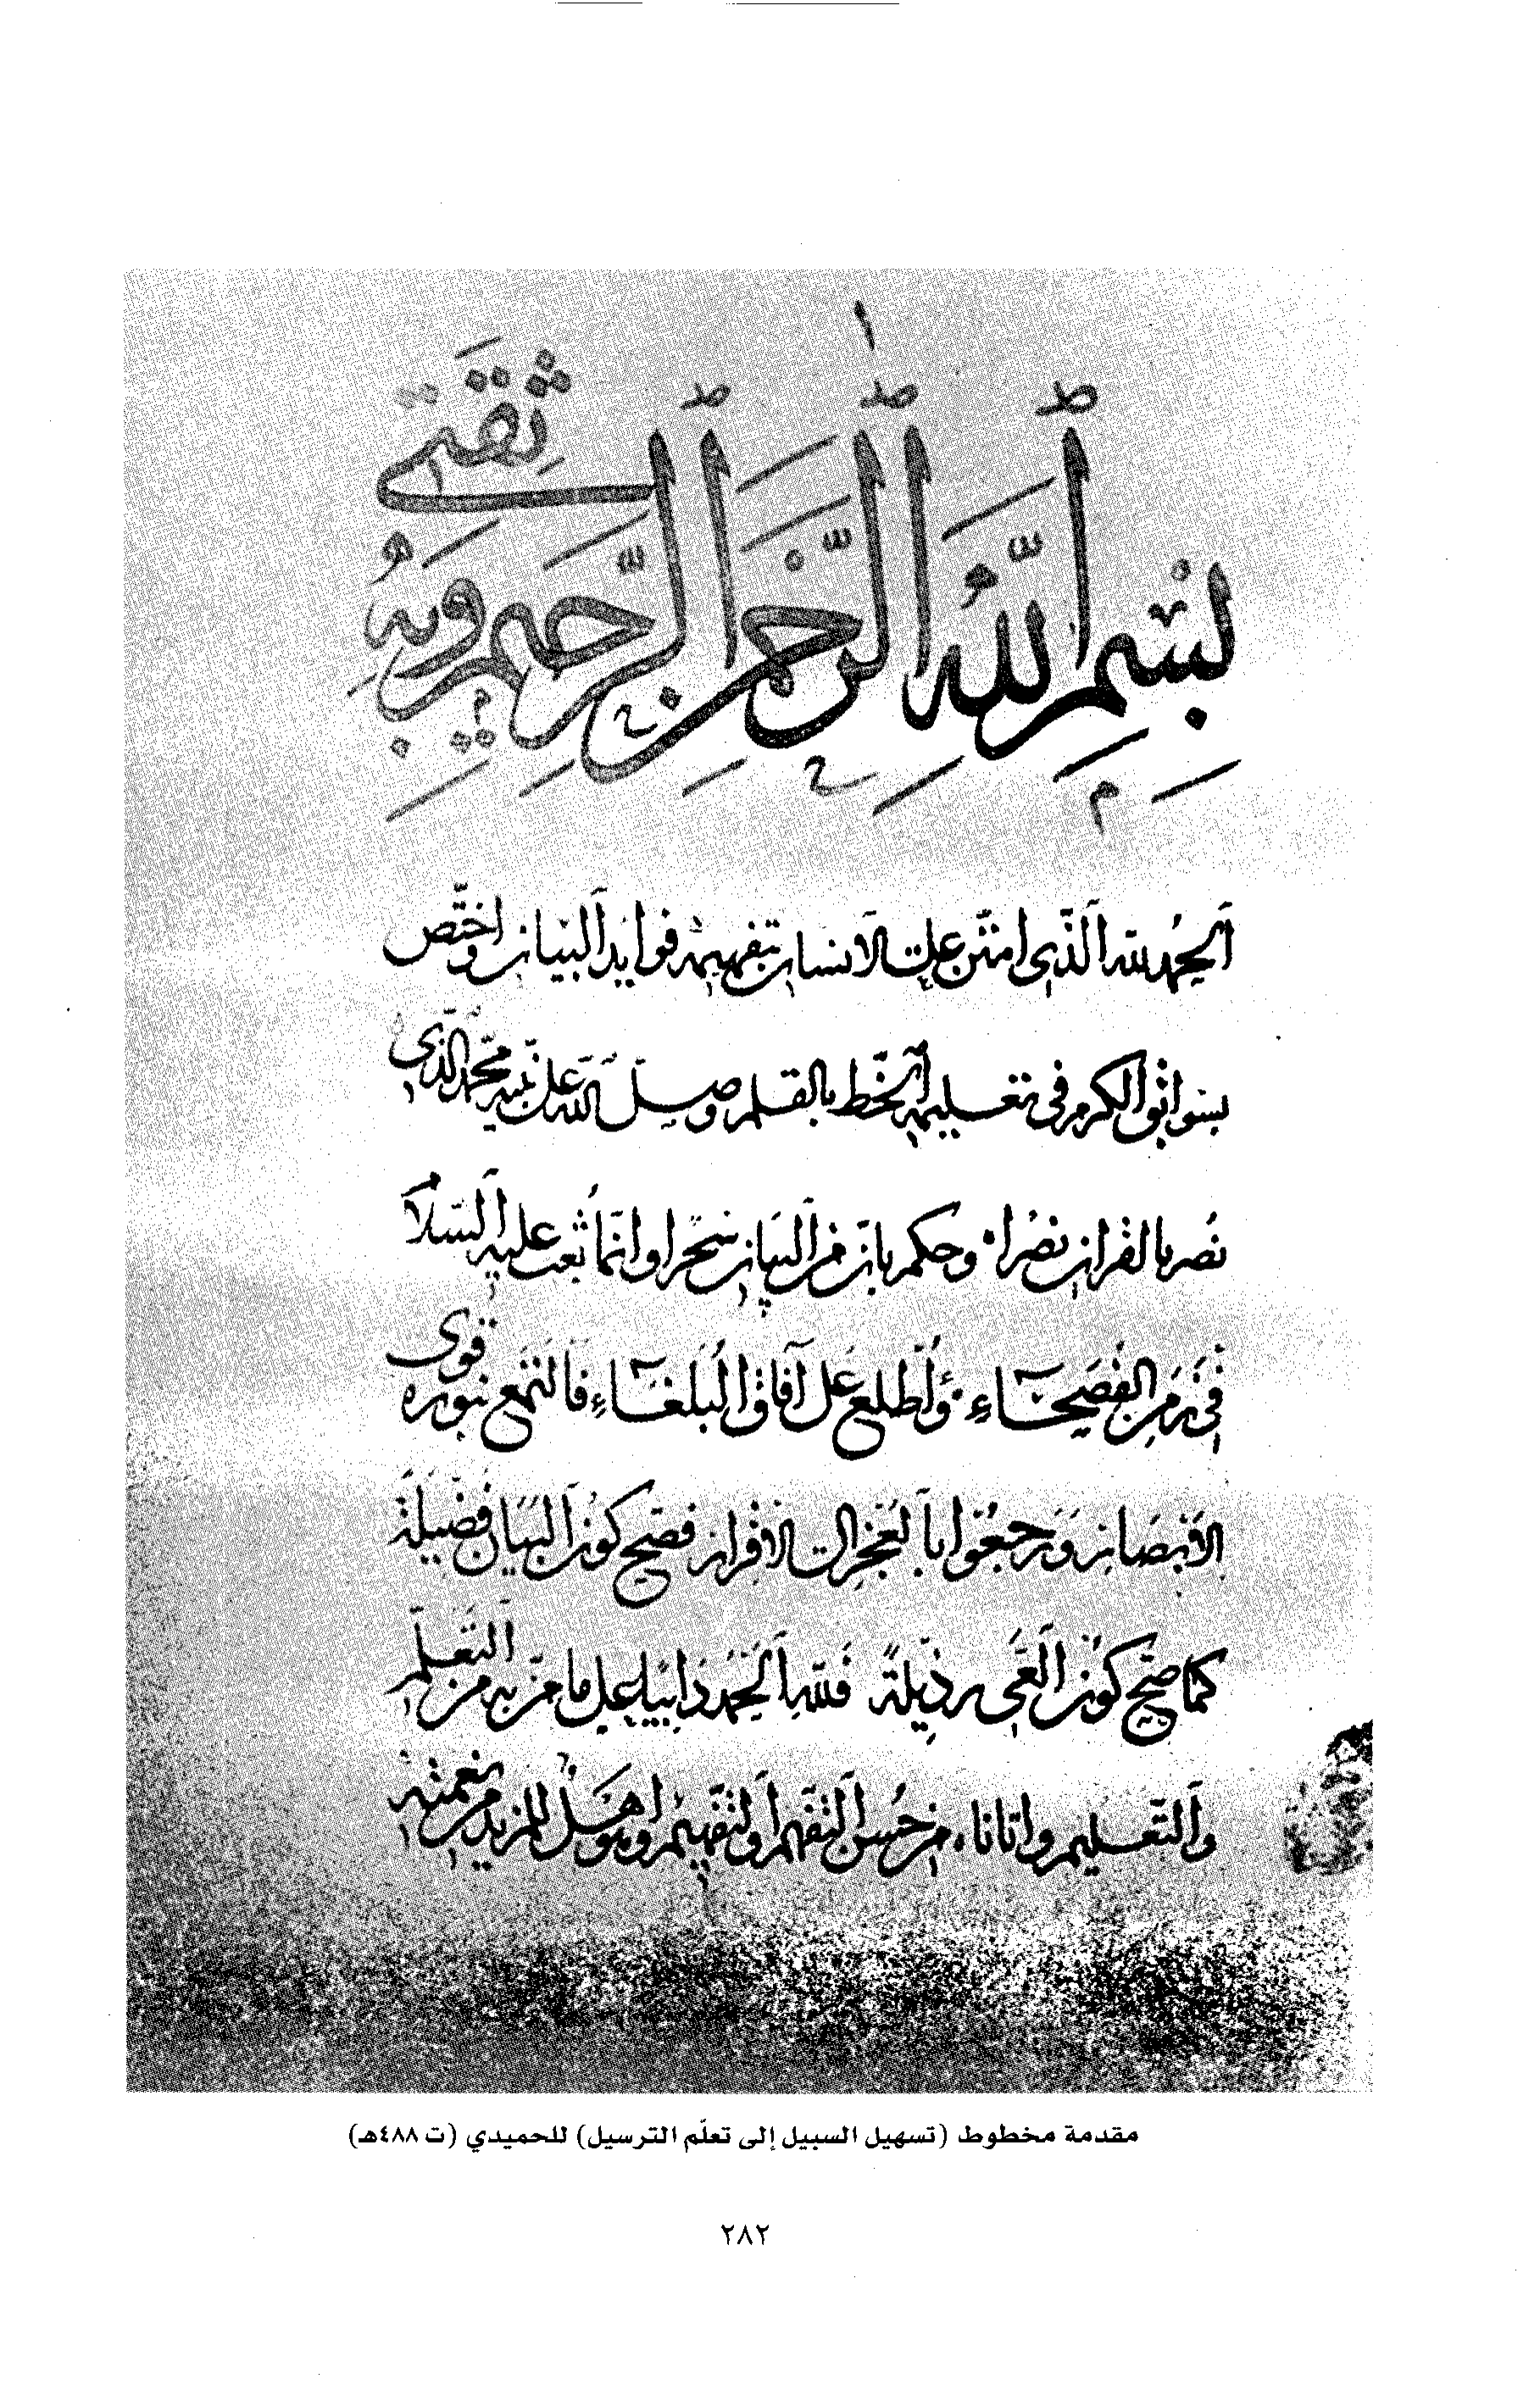 بِسْمِ اللَّهِ الرَّحْمٰنِ الرَّحِيمِ وَبِهِ ثِقَتِي
اَلحمدُ لله الَّذي امتَنّ على الانسان بتفهيمه فوايد اَلبيان واختَصّ
بسوابق الكرم في تعليمه اَلخطّ بالقلم وصلى اَلله عَلى نبيه محمّد الذّي
نُصر بالقران نصْرا وحكم بانّ من اَلبيان سَحرا وانّما بُعث عليه اَلسّلا
في زَمن الفُصَحَاء وَاُطلع عَلى آفاق البُلغَاء فالتمع بنوره قوى
الابْصَار وَرَجَعُوا بالعَجْز الى الاقرار فصَحّ كون اَلبَيان فضيلة
كما صَحّ كون اَلعَىّ رذيلةً فللّه اَلحَمْد دايبًا على ما منّ به من اَلتَّعلّم
وَاَلتّعليم واتانا من حُسن اَلتّفهّم واَلتّفهيم وهو اَهْلُ المزيد من نعمته
مقدمة مخطوط (تسهيل السبيل إلى تعلّم الترسيل) للحميدي (ت ٤٨٨هـ)
٢٨٢